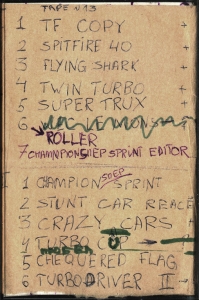 TAPE N13
1 TF COPY →
2 SPITFIRE 40 →
3 FLYING SHARK
4 TWIN TURBO →
5 SUPER TRUX →
6
ROLLER
7 CHAMPIONSHIEP SPRINT EDITOR
1 CHAMPION SHIEP SPRINT
2 STUNT CAR REACE
3 CRAZY CARS →
4 TURBO CUP →
5 CHEQUERED FLAG
6 TURBO DRIVER II →